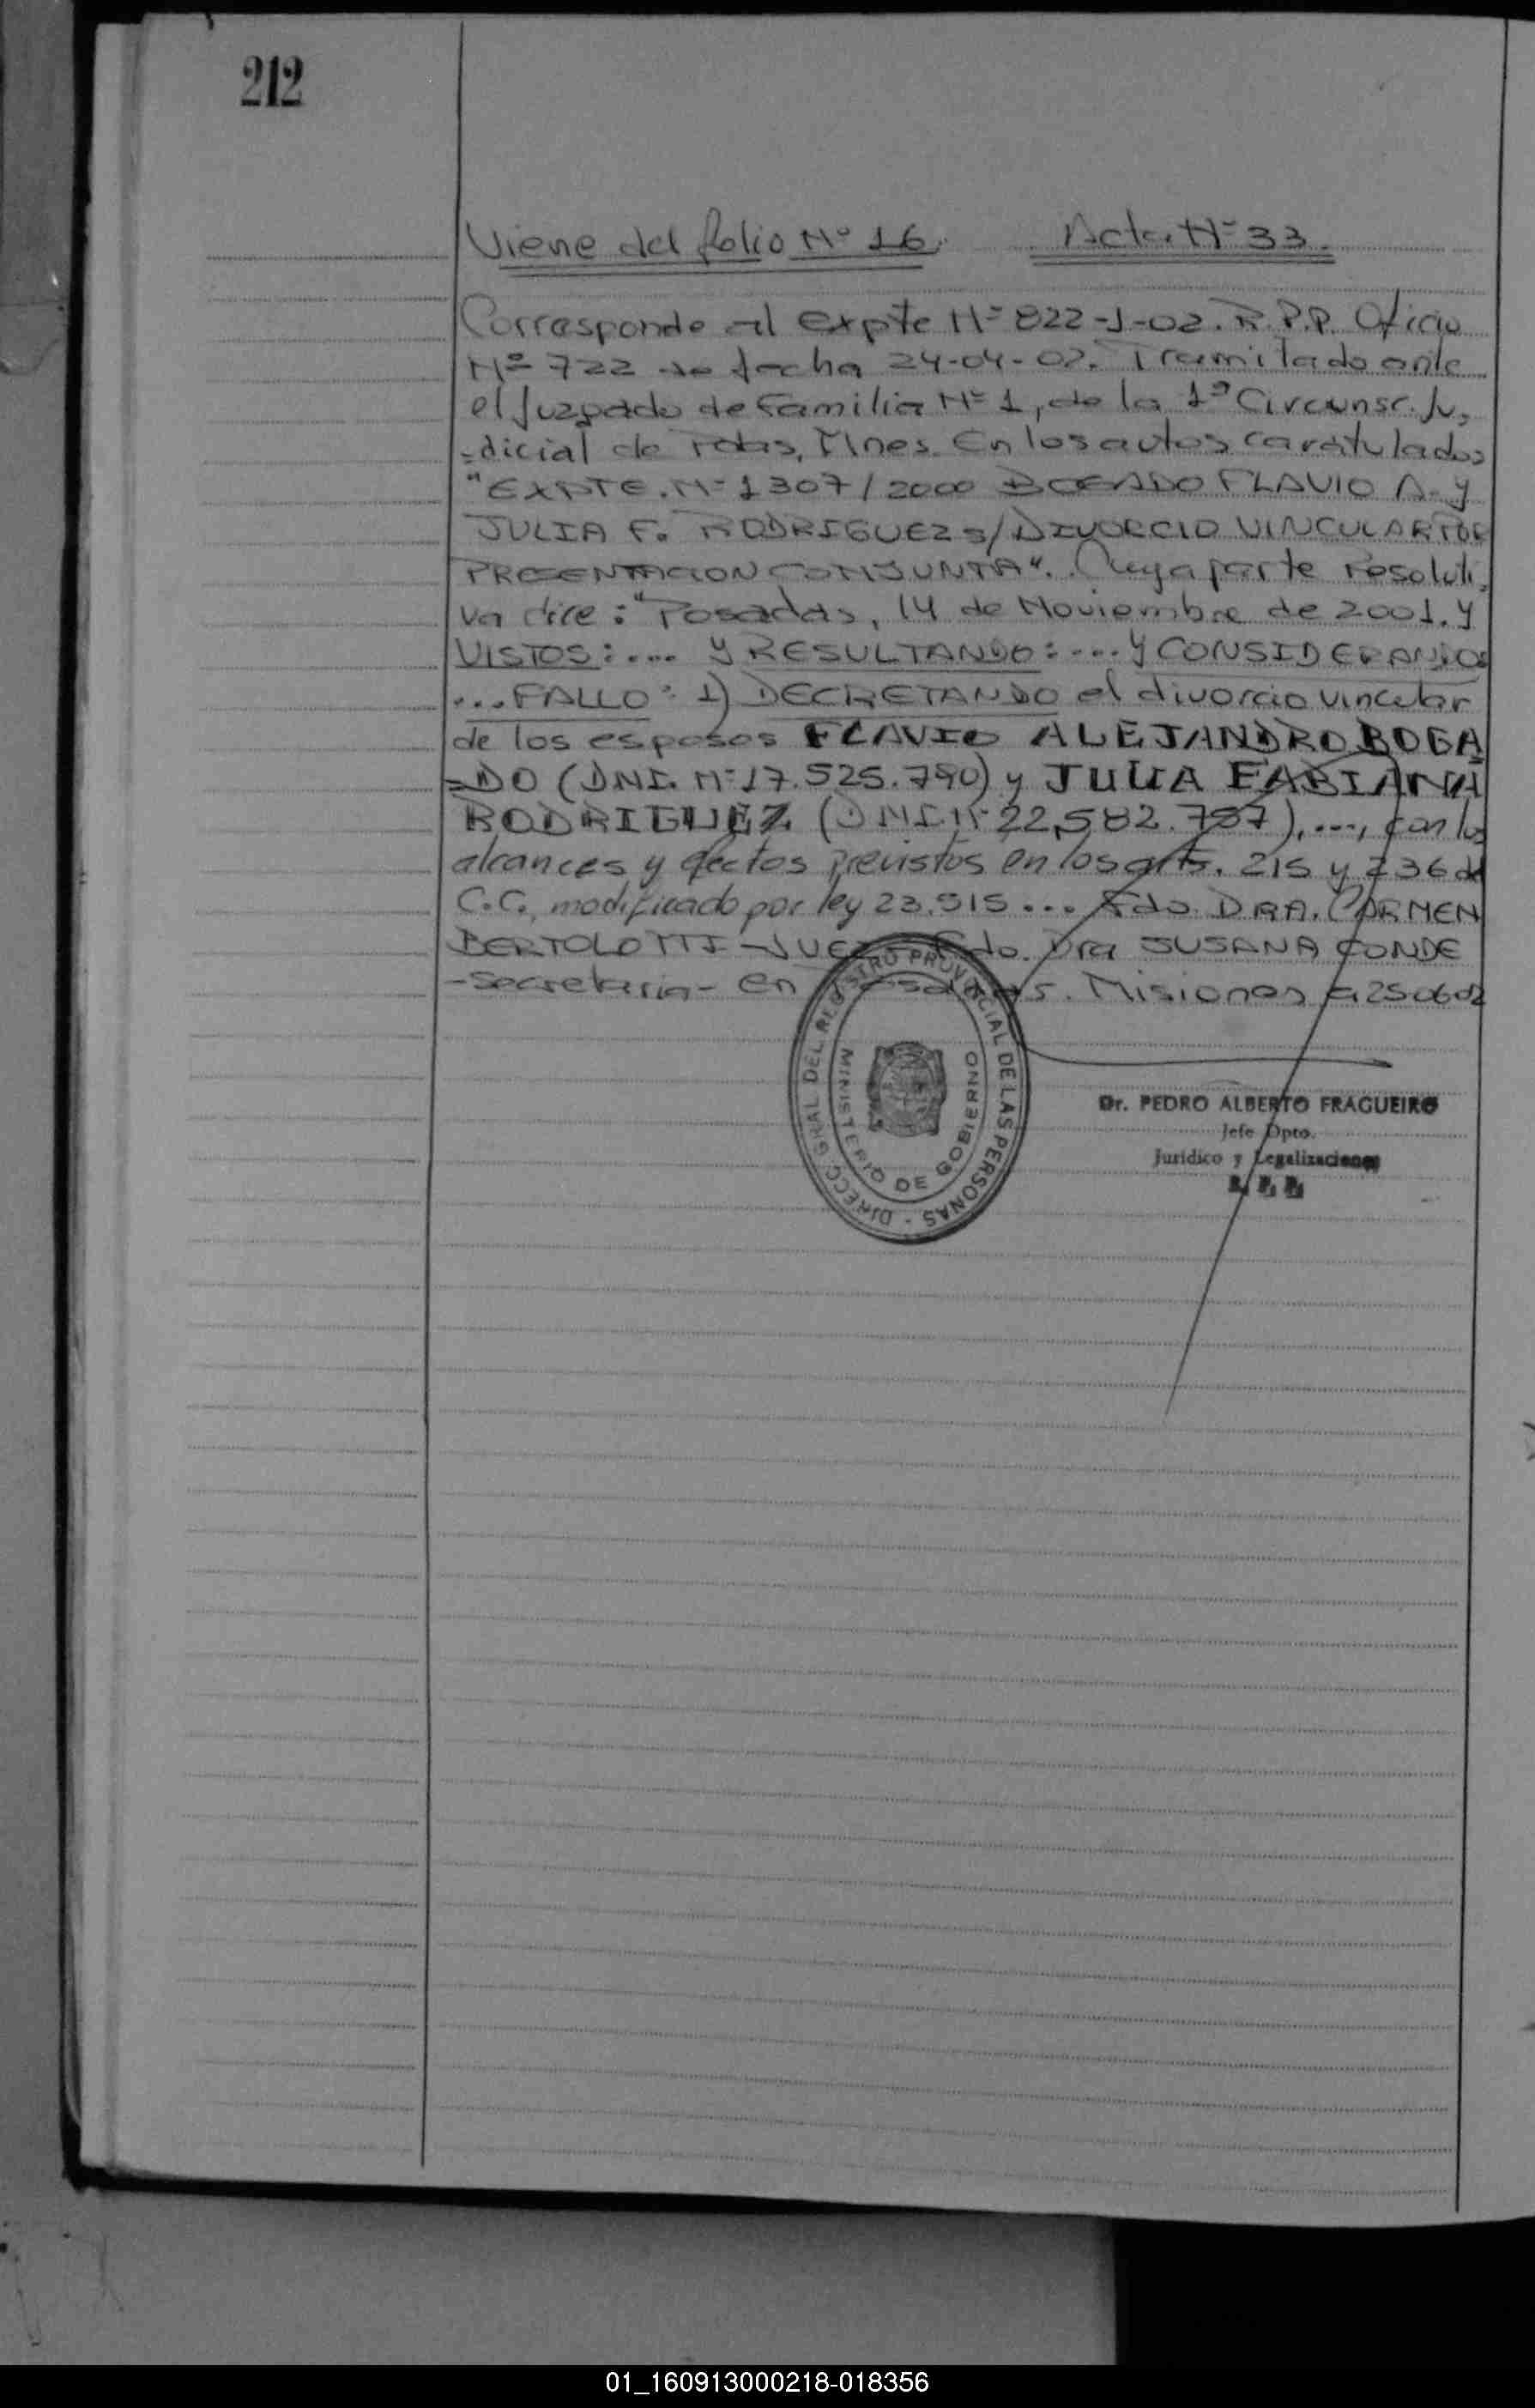 212
Viene del folio Nº 16. Acta Nº 33.
Corresponde al Expte Nº 822-J-02. R.P.P. Oficio
Nº 722 de fecha 24-04-02. Tramitado ante
el Juzgado de Familia Nº 1, de la 1ª Circunsc. Ju,
=dicial de Pdas, Mnes. En los autos caratulados
"EXPTE. Nº 1307/2000 BOGADO FLAVIO A. y
JULIA F. RODRIGUEZ S/DIVORCIO VINCULAR POR
PRESENTACION CONJUNTA". Cuya parte resoluti,
va dice: "Posadas, 14 de Noviembre de 2001. y
VISTOS:... y RESULTANDO:... y CONSIDERANDO:
...FALLO: 1) DECRETANDO el divorcio vincular
de los esposos FLAVIO ALEJANDRO BOGA
=DO (DNI. Nº 17.525.790) y JULIA FABIANA
RODRIGUEZ (DNI Nº 22,582.787),..., con los
alcances y efectos previstos en los arts. 215 y 236 del
C.C., modificado por ley 23.515... Fdo. DRA. CARMEN
BERTOLOTTI - JUEZ - Fdo. Dra SUSANA CONDE
-Secretaria- en Posadas. Misiones a, 25-06-02
DIRECC. GRAL DEL REGISTRO PROVINCIAL DE LAS PERSONAS -
MINISTERIO DE GOBIERNO
Dr. PEDRO ALBERTO FRAGUEIRO
Jefe Dpto.
Jurídico y Legalizaciones
01_160913000218-018356